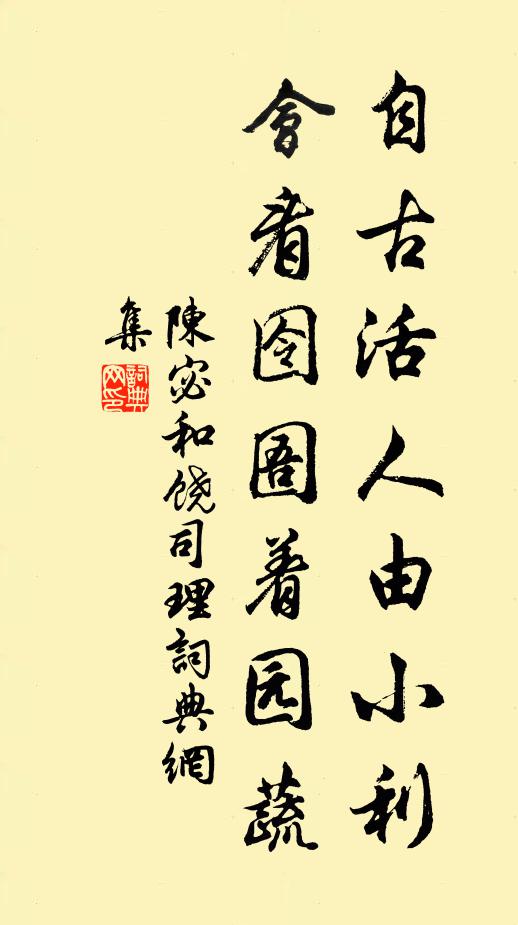 自古活人由小利
會看囹圄着园蔬
陳宓和饒司理詞典網
集
詞典网印